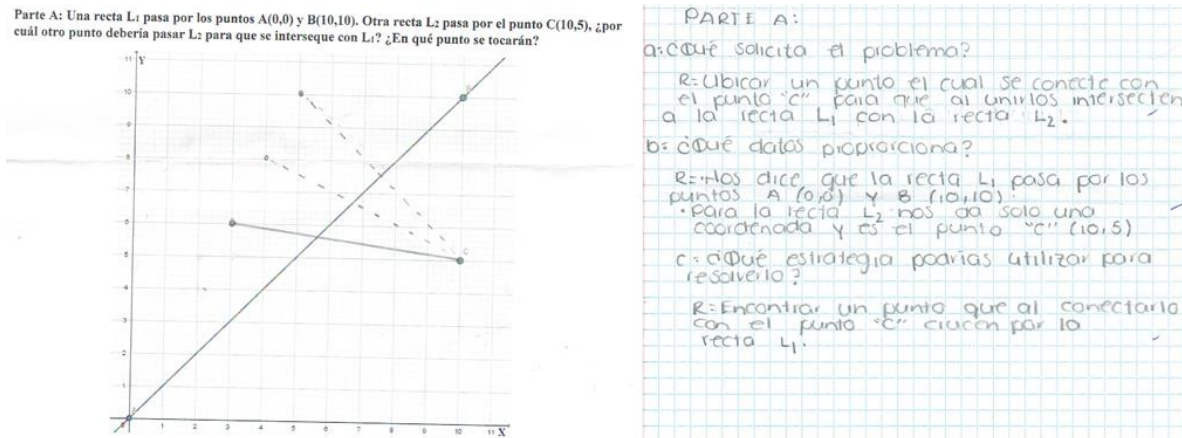 Parte A: Una recta L₁ pasa por los puntos A(0,0) y B(10,10). Otra recta L₂ pasa por el punto C(10,5), ¿por
cuál otro punto debería pasar L₂ para que se interseque con L₁? ¿En qué punto se tocarán?
11 Y
10
9
8
7
6
5
4
3
2
1
1 2 3 4 5 6 7 8 9 10 11 X
C
PARTE A:
a: ¿Qué solicita el problema?
R= Ubicar un punto el cual se conecte con
el punto "C" para que al unirlos intersecten
a la recta L₁ con la recta L₂.
b: ¿Qué datos proporciona?
R= Nos dice que la recta L₁ pasa por los
puntos A (0,0) y B (10,10).
• Para la recta L₂ nos da solo una
coordenada y es el punto "C" (10,5)
c: ¿Qué estrategia podrías utilizar para
resolverlo?
R= Encontrar un punto que al conectarlo
con el punto "C" crucen por la
recta L₁.